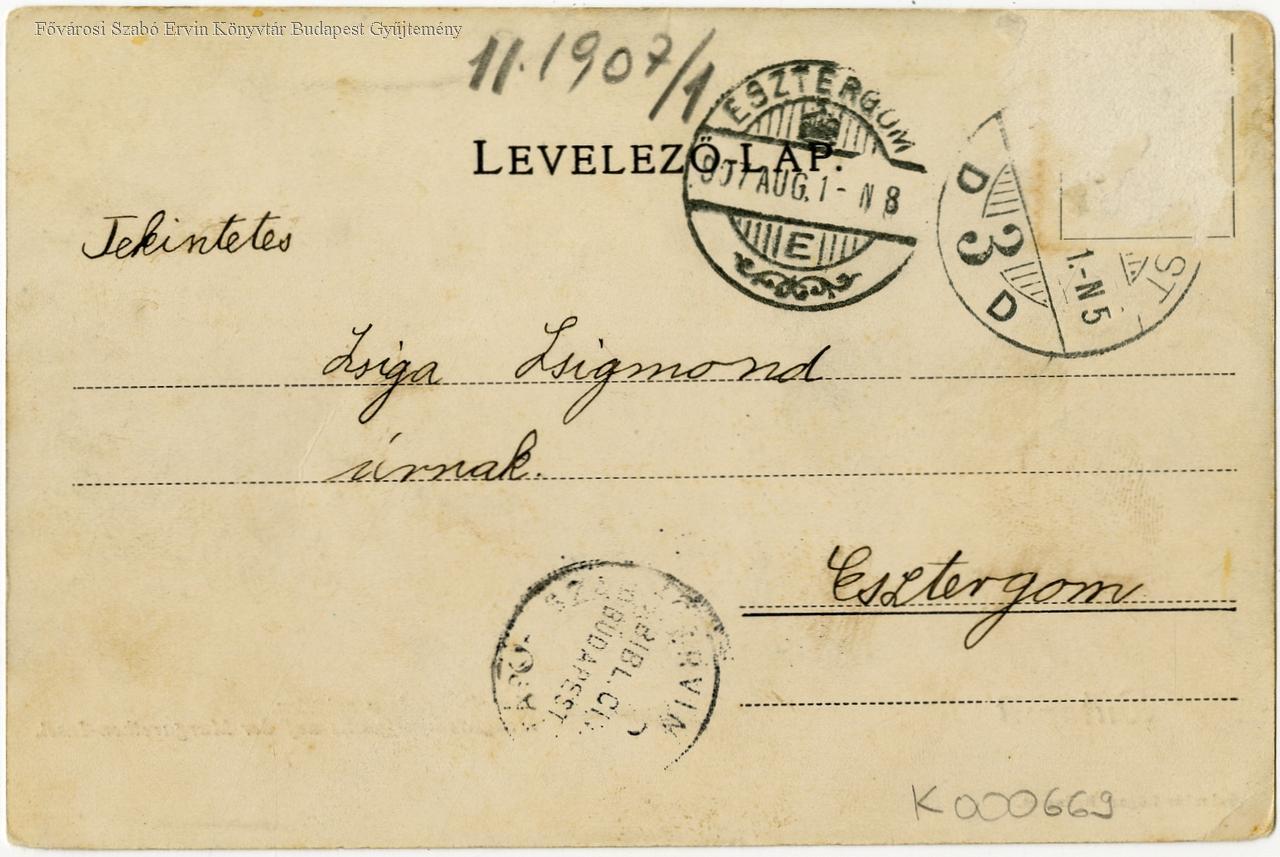 Fővárosi Szabó Ervin Könyvtár Budapest Gyűjtemény
11.1907/1
ESZTERGOM
LEVELEZŐ-LAP.
907 AUG. 1 - N 8
E
D 3 D
1.-N5
ST
Tekintetes
Zsiga Zsigmond
úrnak.
Esztergom
SZABÓ ERVIN
BIBL. CIV.
BUDAPEST
K000669